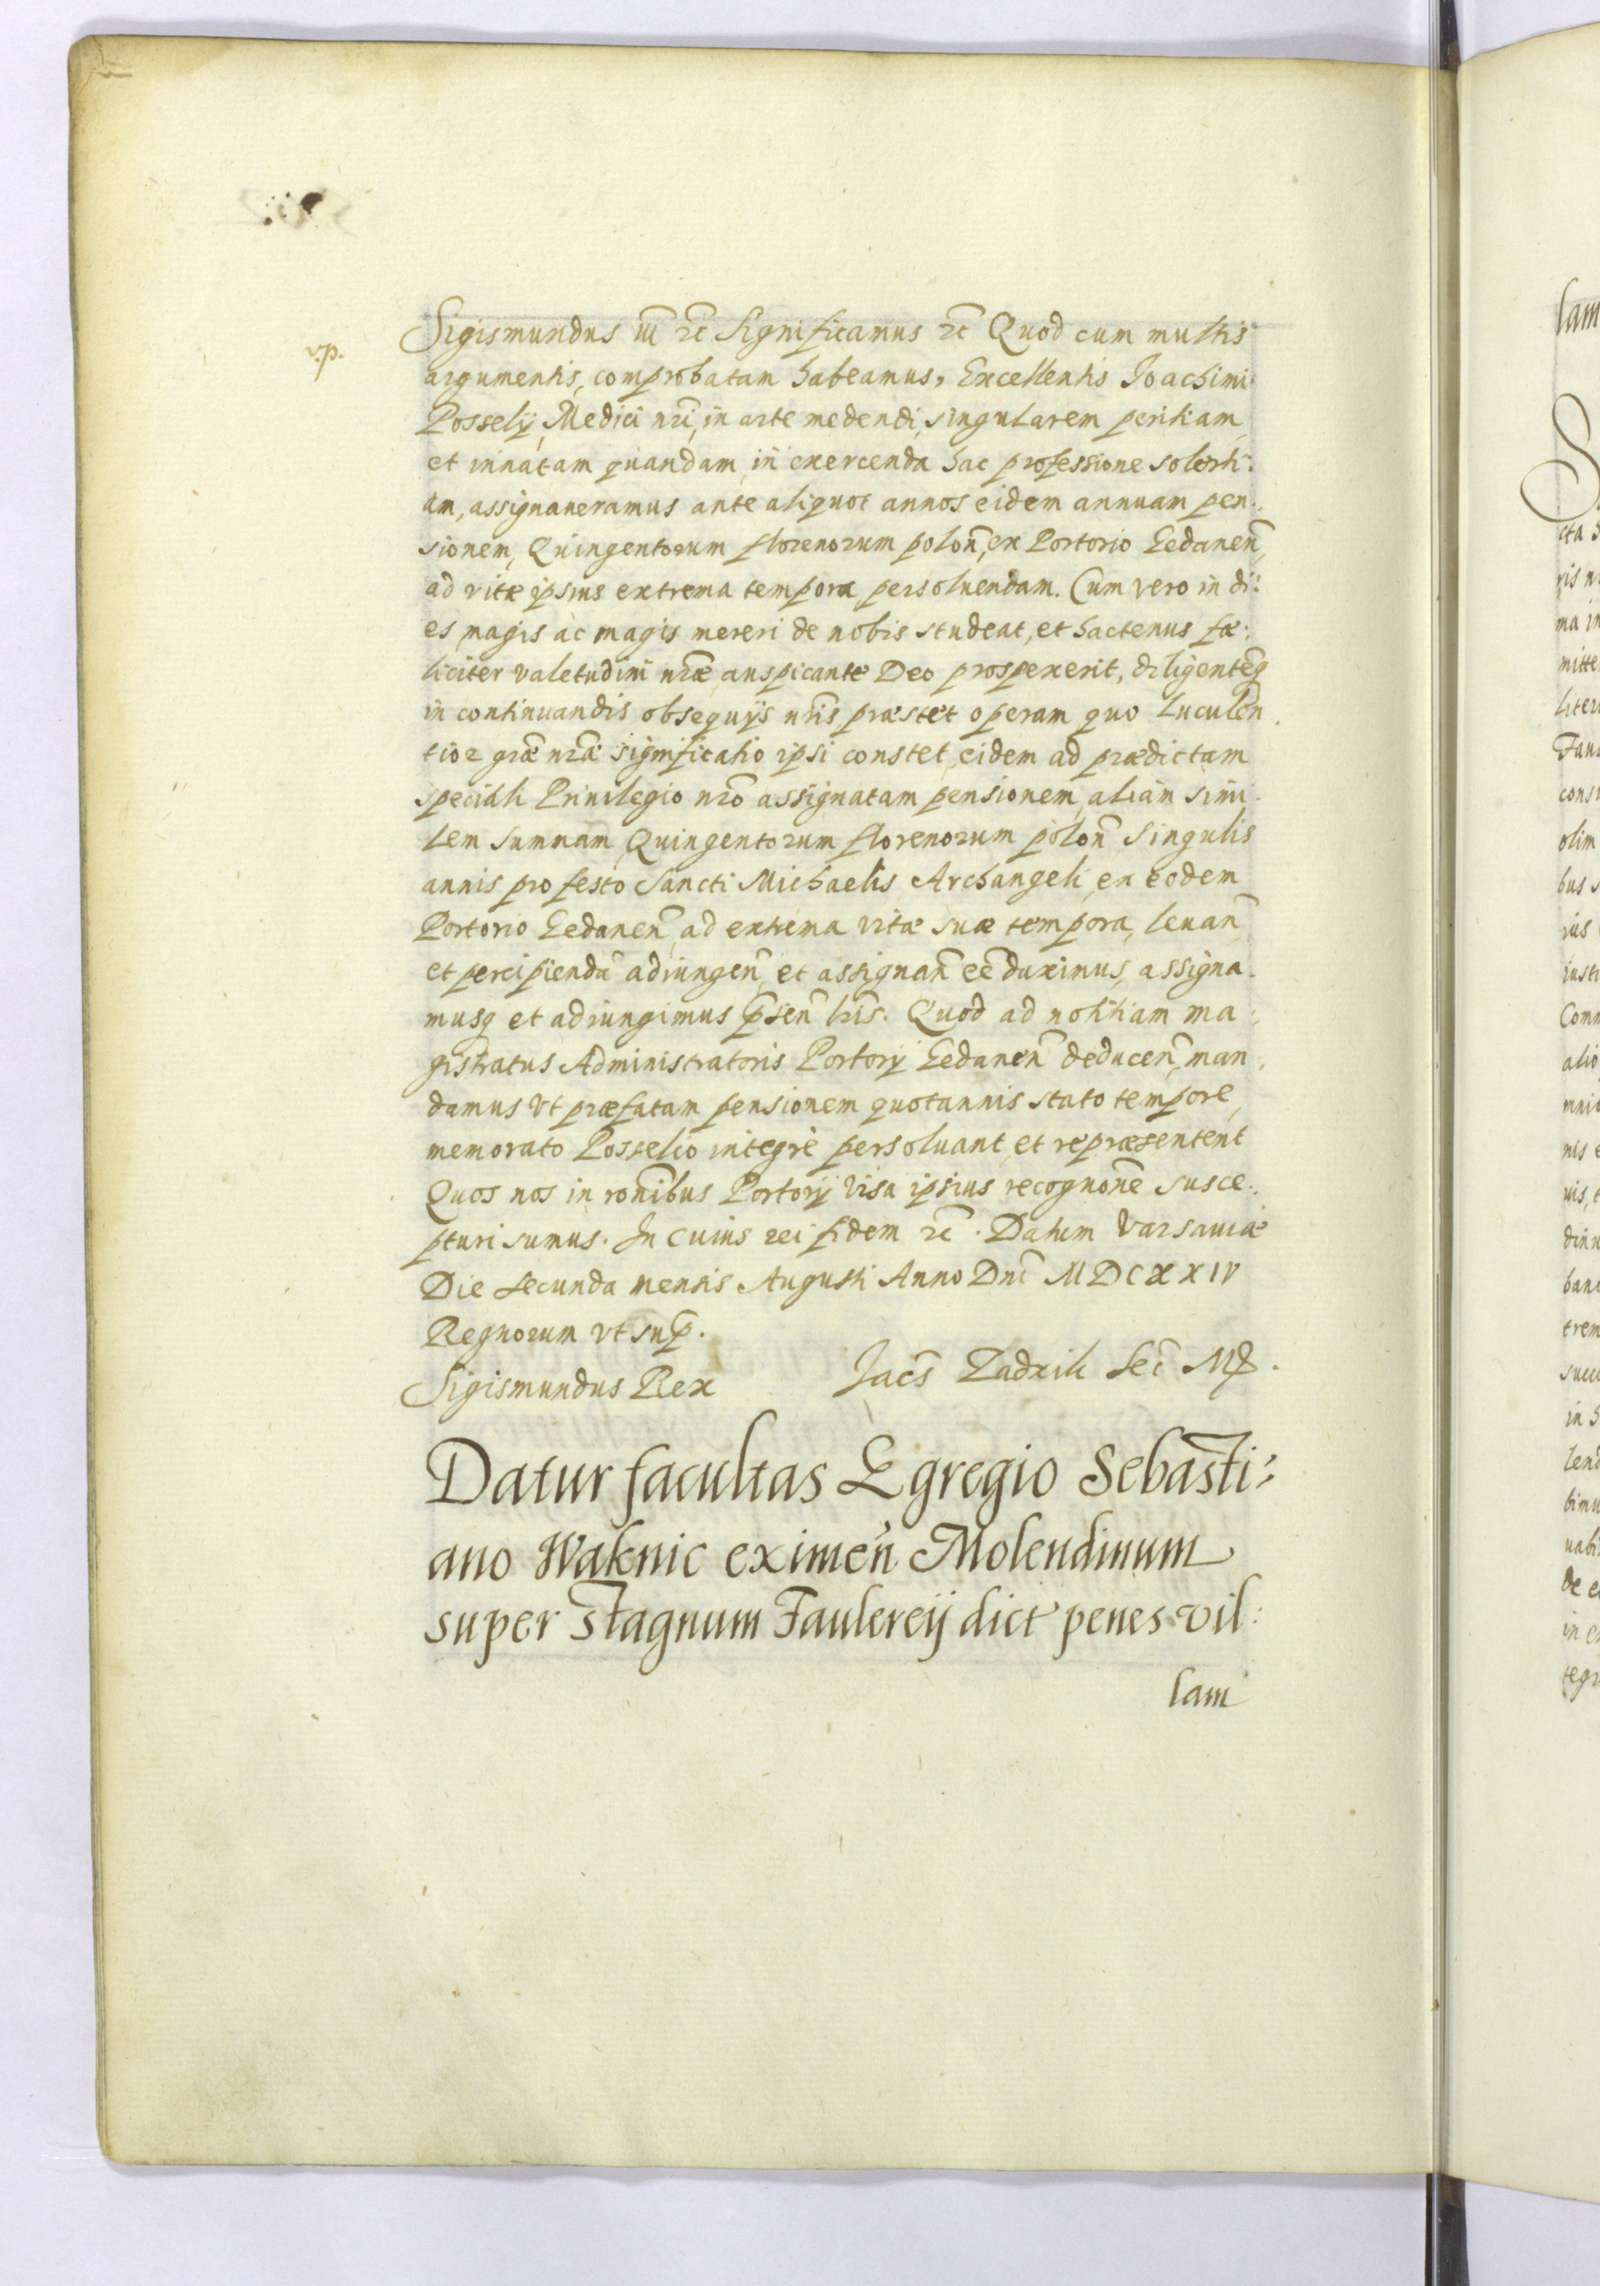 v.p.
Sigismundus III etc Significamus etc Quod cum multis
argumentis, comprobatam habeamus, Excellentis Joachimi
Posselij, Medici nri, in arte medendi, singularem peritiam
et innatam quandam, in exercenda hac professione solerti:
am, assignaveramus ante aliquot annos eidem annuam pen:
sionem, Quingentorum florenorum polon, ex Portorio Gedanen,
ad vitæ ipsius extrema tempora persoluendam. Cum vero in di:
es magis ac magis mereri de nobis studeat, et hactenus fæ:
liciter valetudini nræ auspicante Deo prospexerit, diligentemq
in continuandis obsequijs nris præstet operam quo luculen
tior græ nræ significatio ipsi constet, eidem ad prædictam
speciali Priuilegio nro assignatam pensionem, aliam simi
lem summam Quingentorum florenorum polon singulis
annis pro festo Sancti Michaelis Archangeli, ex eodem
Portorio Gedanen, ad extrema vitæ suæ tempora, leuan
et percipiendam adiungen, et assignan ee duximus, assigna
musq et adiungimus psen lris. Quod ad notitiam ma:
gistratus Administratoris Portorij Gedanen deducen, man
damus vt præfatam pensionem quotannis stato tempore,
memorato Posselio integrè persoluant et repræsentent
Quos nos in ronibus Portorij visa ipsius recognone susce:
pturi sumus. In cuius rei fidem etc. Datum Varsauiæ
Die secunda mensis Augusti Anno Dni MDCXXIV
Regnorum vt sup.
Sigismundus Rex Jacs Zadzik Sec Mp.
Datur facultas Egregio Sebasti:
ano Waknic eximen Molendinum
super stagnum Faulereij dict penes vil:
lam